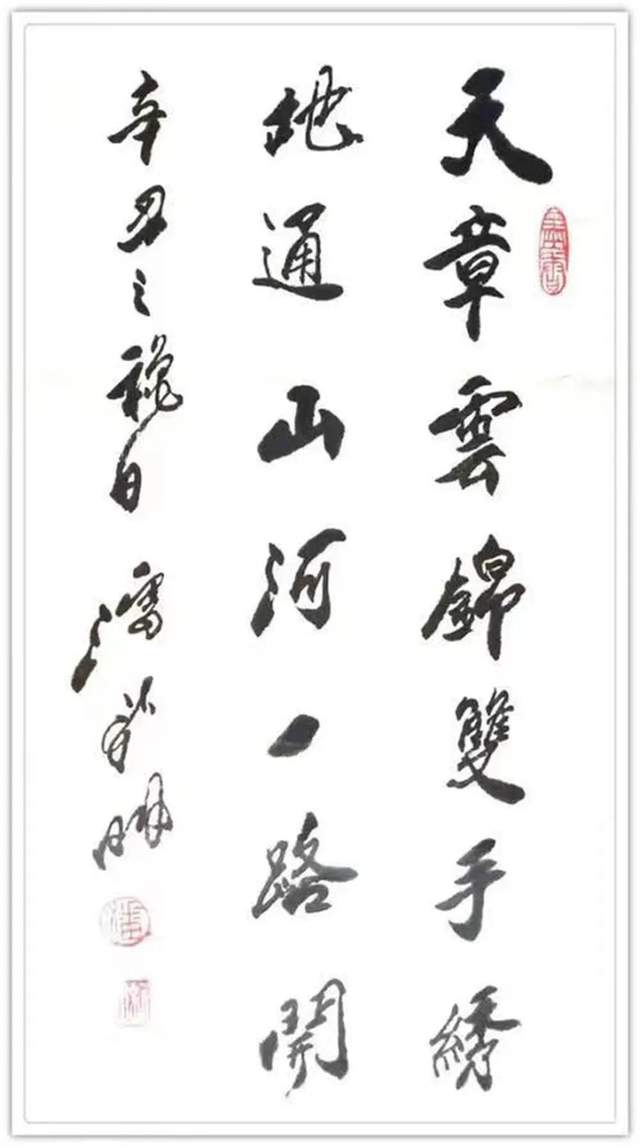 天章雲錦雙手繡
地通山河一路開
辛丑之秋日 潘